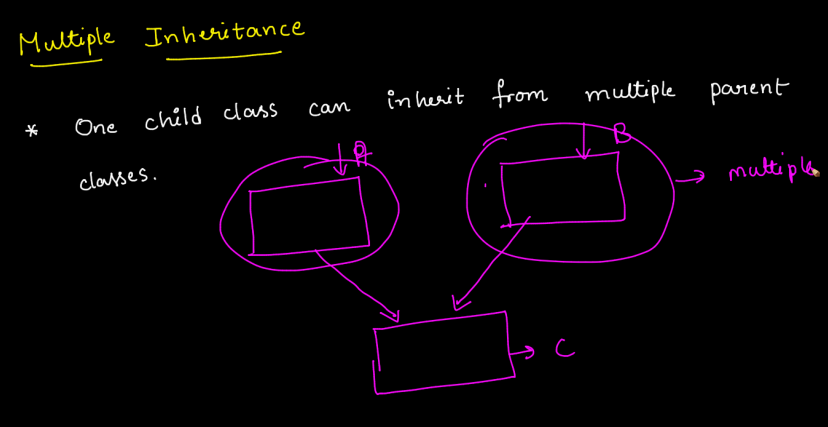 Multiple Inheritance
* One child class can inherit from multiple parent
classes.
A
B
multiple
C